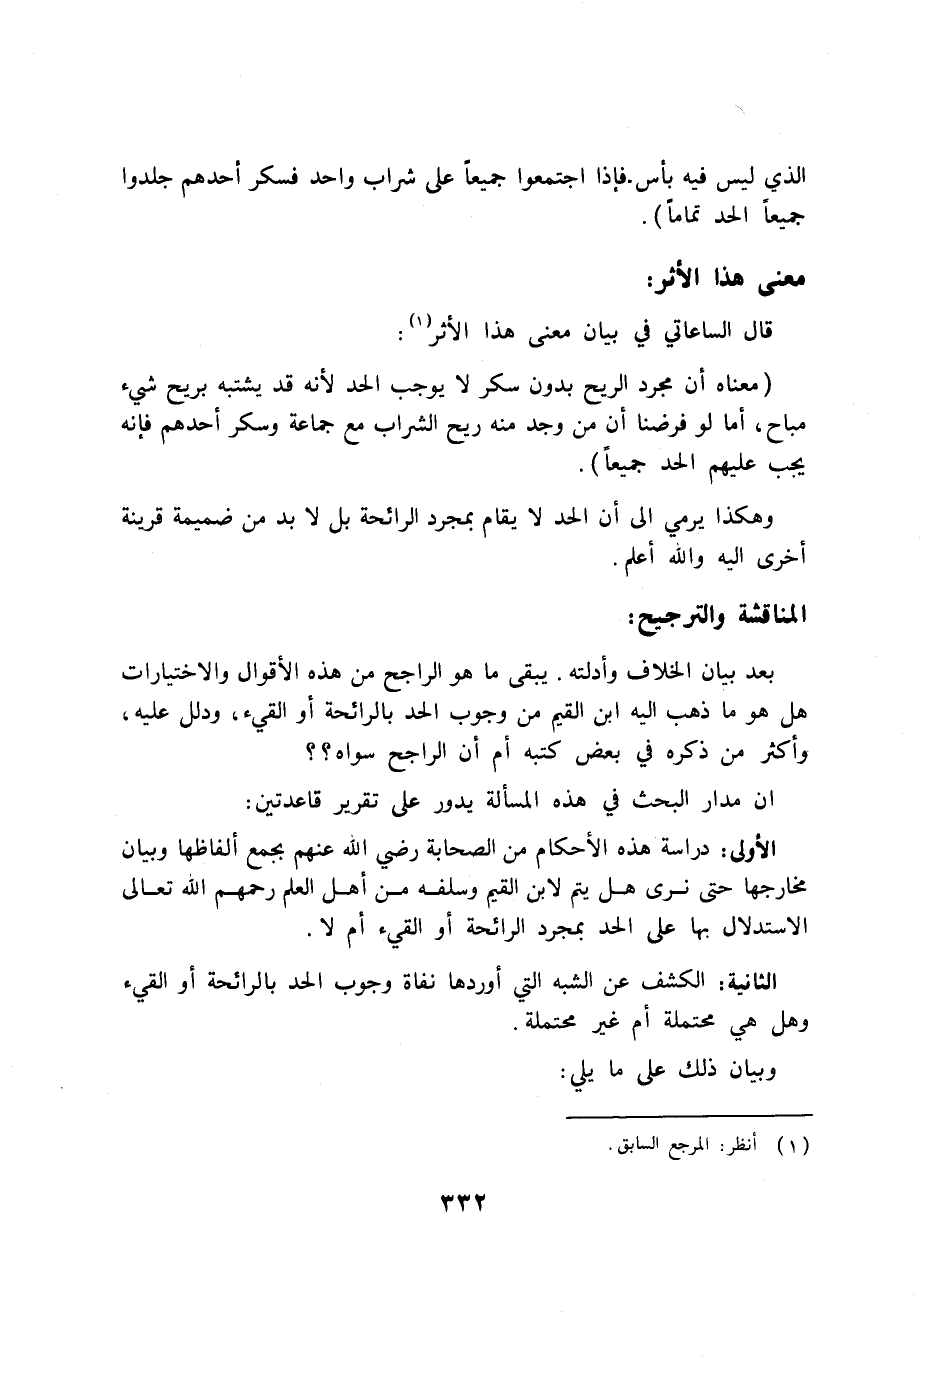 الذي ليس فيه بأس. فإذا اجتمعوا جميعاً على شراب واحد فسكر أحدهم جلدوا
جميعاً الحد تماماً).
معنى هذا الأثر:
قال الساعاتي في بيان معنى هذا الأثر(١):
(معناه أن مجرد الريح بدون سكر لا يوجب الحد لأنه قد يشتبه بريح شيء
مباح، أما لو فرضنا أن من وجد منه ريح الشراب مع جماعة وسكر أحدهم فإنه
يجب عليهم الحد جميعاً).
وهكذا يرمي الى أن الحد لا يقام بمجرد الرائحة بل لا بد من ضميمة قرينة
أخرى اليه والله أعلم.
المناقشة والترجيح:
بعد بيان الخلاف وأدلته. يبقى ما هو الراجح من هذه الأقوال والاختيارات
هل هو ما ذهب اليه ابن القيم من وجوب الحد بالرائحة أو القيء، ودلل عليه،
وأكثر من ذكره في بعض كتبه أم أن الراجح سواه؟؟
ان مدار البحث في هذه المسألة يدور على تقرير قاعدتين:
الأولى: دراسة هذه الأحكام من الصحابة رضي الله عنهم بجمع ألفاظها وبيان
مخارجها حتى نرى هل يتم لابن القيم وسلفه من أهل العلم رحمهم الله تعالى
الاستدلال بها على الحد بمجرد الرائحة أو القيء أم لا.
الثانية: الكشف عن الشبه التي أوردها نفاة وجوب الحد بالرائحة أو القيء
وهل هي محتملة أم غير محتملة.
وبيان ذلك على ما يلي:
(١) أنظر: المرجع السابق.
٣٣٢